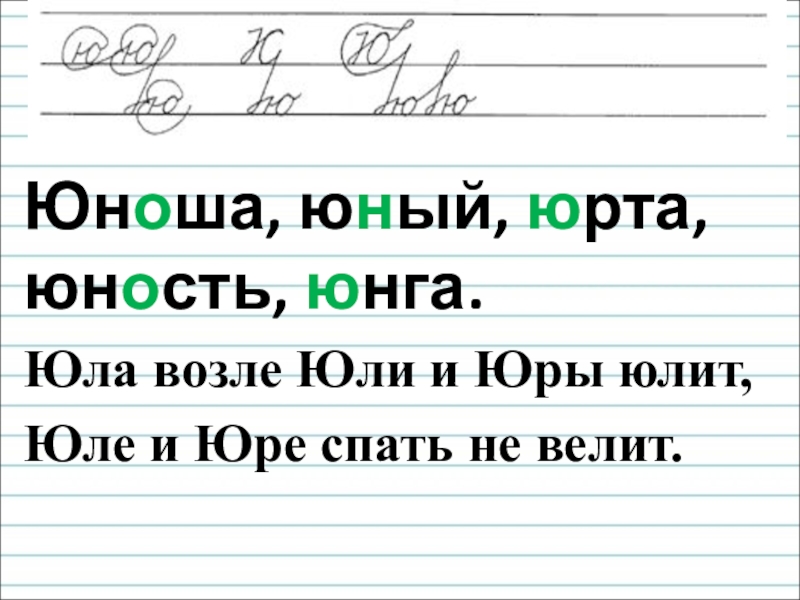 Юноша, юный, юрта,
юность, юнга.
Юла возле Юли и Юры юлит,
Юле и Юре спать не велит.